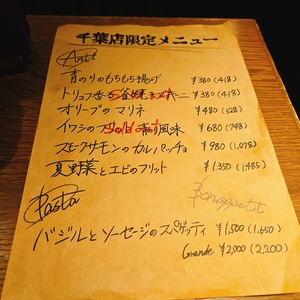 千葉店限定メニュー
Anti
青のりのもちもち揚げ ¥380(418)
トリュフ香る ¥380(418)
オリーブのマリネ ¥480(528)
イワシの 風味 ¥680(748)
スモークサーモンのカルパッチョ ¥980(1,078)
夏野菜とエビのフリット ¥1,350(1,485)
Bonappetit
Pasta
バジルとソーセージのスパゲッティ ¥1,500(1,650)
Grande ¥2,000(2,200)